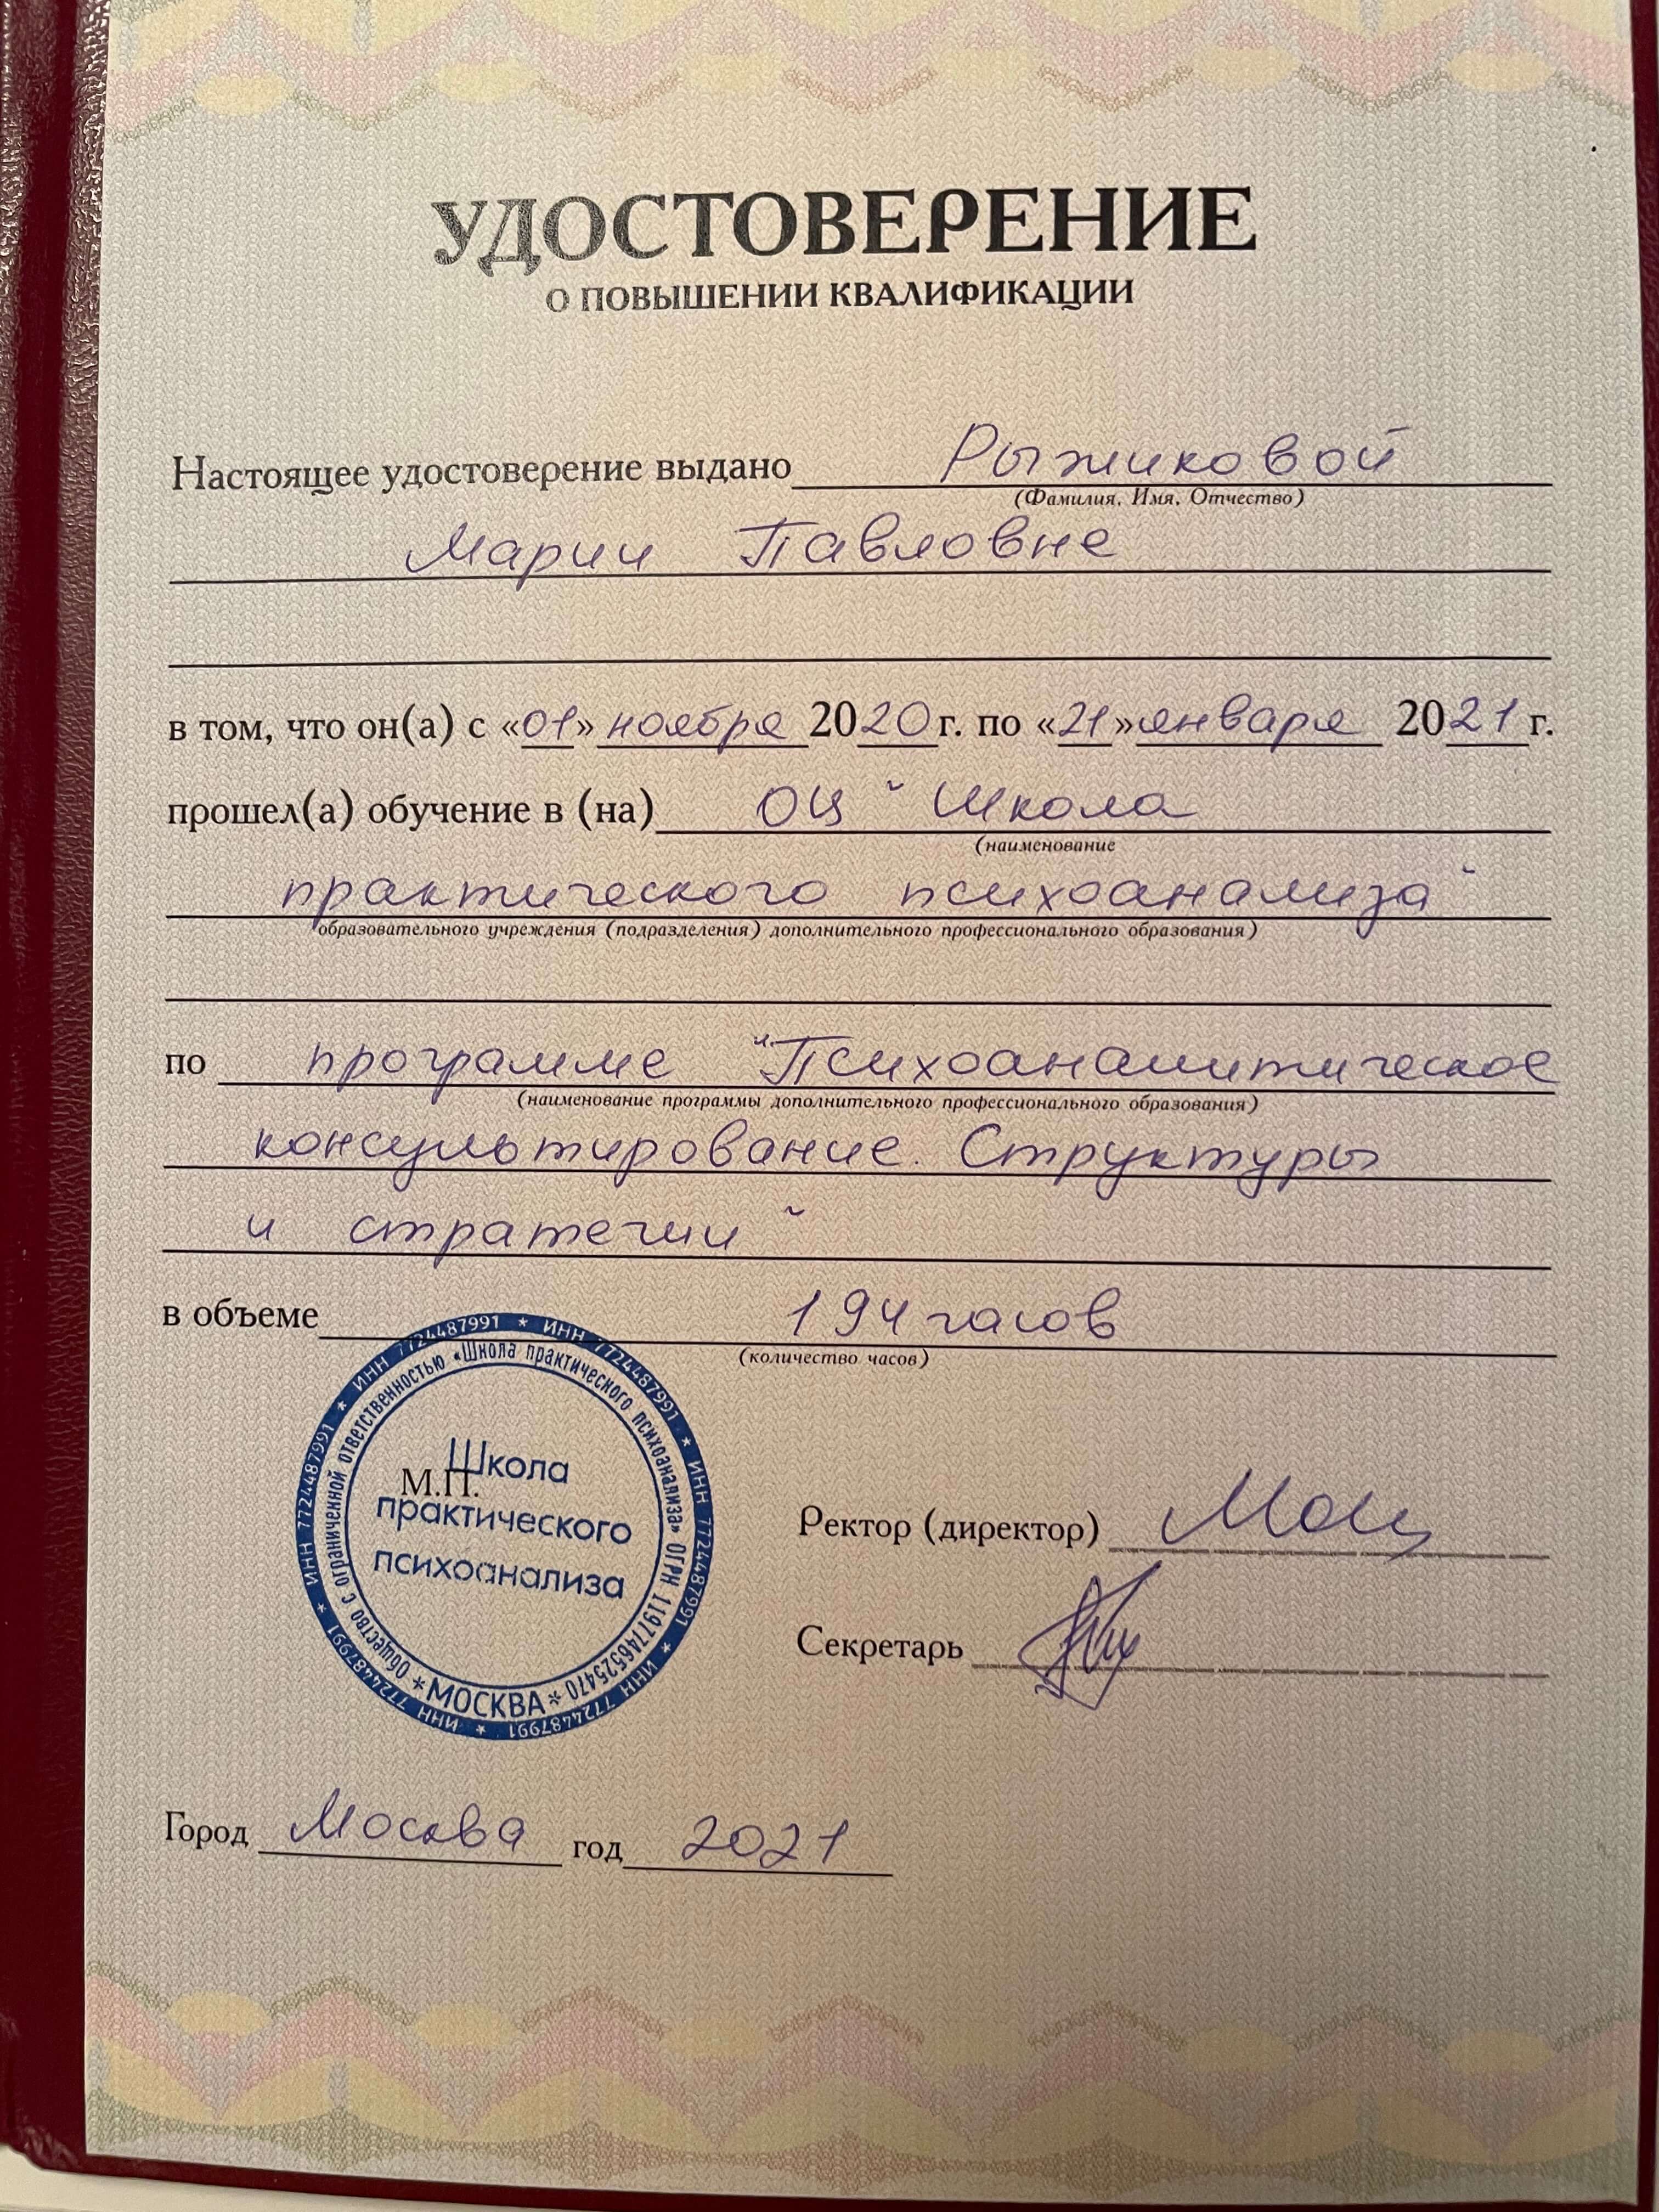 УДОСТОВЕРЕНИЕ
О ПОВЫШЕНИИ КВАЛИФИКАЦИИ
Настоящее удостоверение выдано Рыжиковой
(Фамилия, Имя, Отчество)
Марии Павловне
в том, что он(а) с «01» ноября 2020 г. по «21» января 2021 г.
прошел(а) обучение в (на) ОЦ "Школа
(наименование
практического психоанализа"
образовательного учреждения (подразделения) дополнительного профессионального образования)
по программе "Психоаналитическое
(наименование программы дополнительного профессионального образования)
консультирование. Структуры
и стратегии"
в объеме 194 часов
(количество часов)
ИНН 7724487991 * ИНН 7724487991 * ИНН 7724487991 * ИНН 7724487991 * ИНН 7724487991 * ИНН 7724487991 * ИНН 7724487991 *
Общество с ограниченной ответственностью «Школа практического психоанализа» ОГРН 1197746525470
* МОСКВА *
Школа
М.П.
практического
психоанализа
Ректор (директор)
Секретарь
Город Москва год 2021